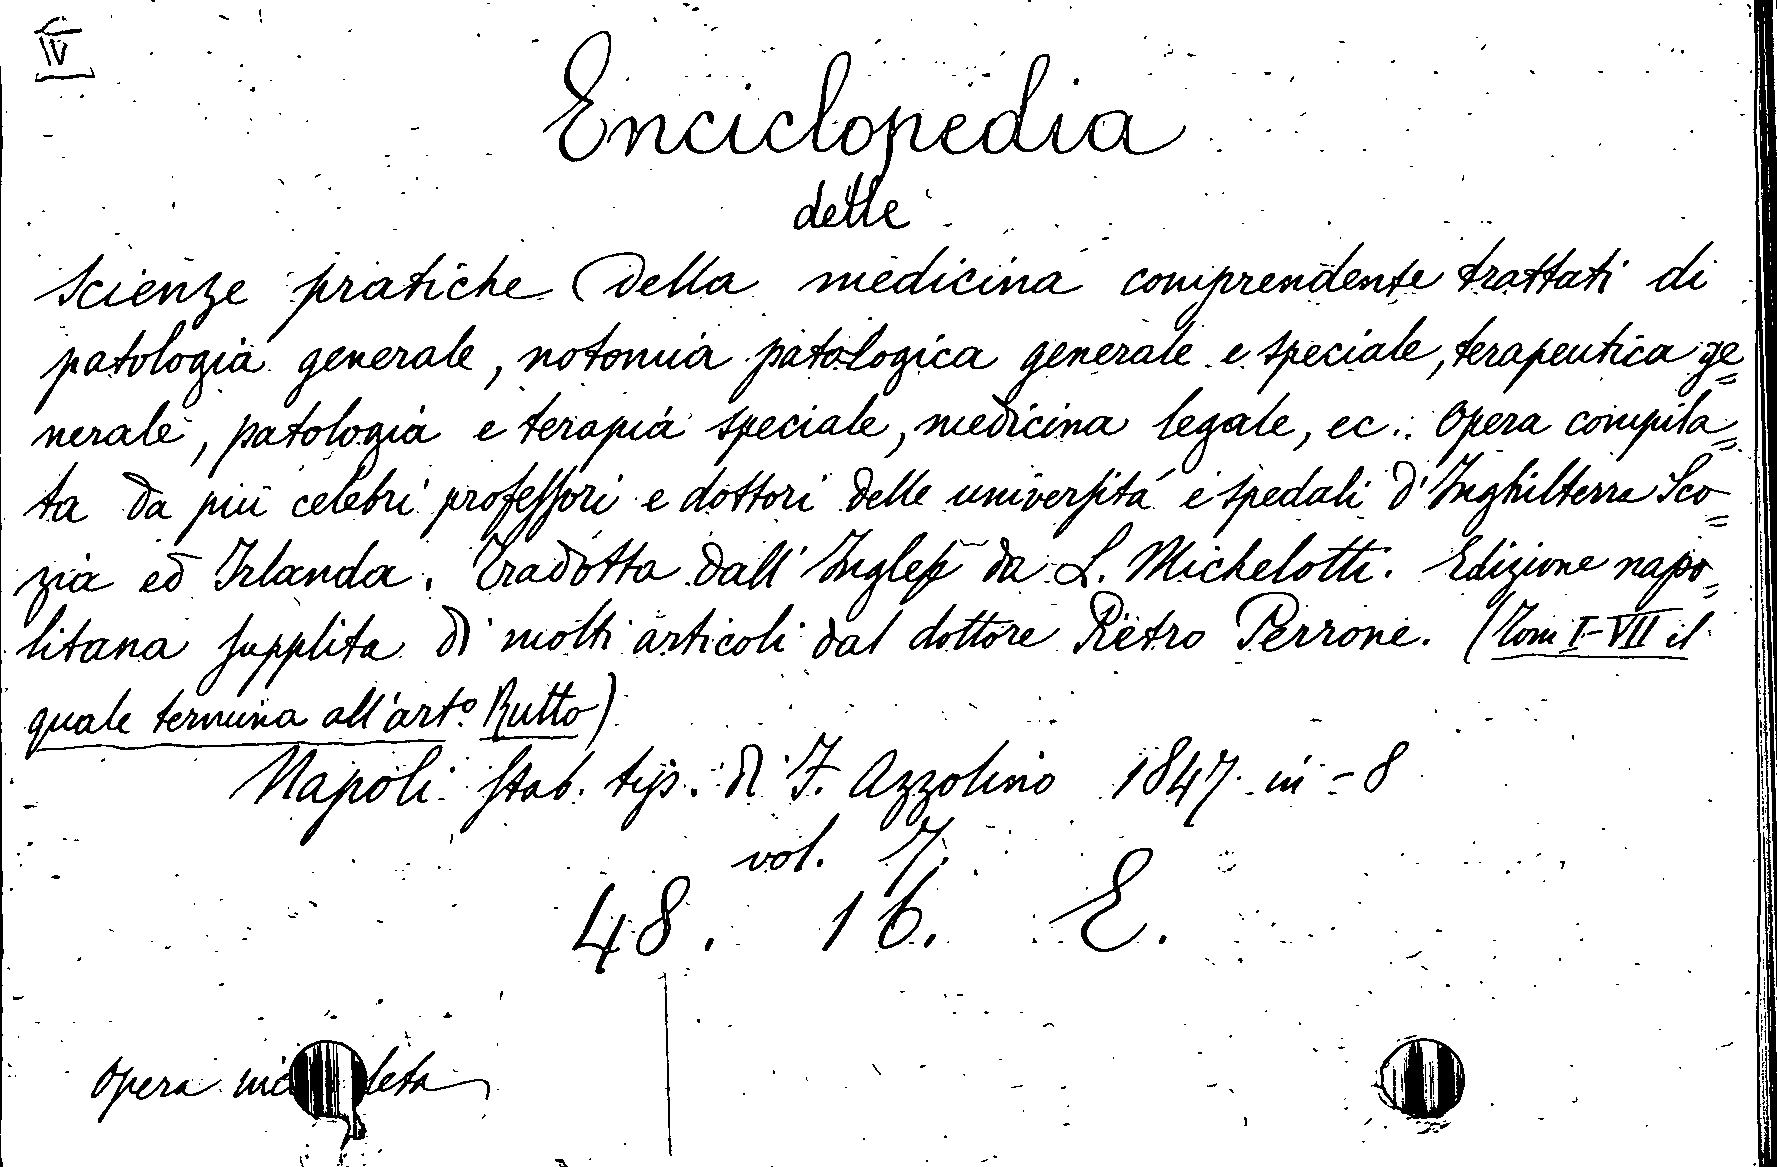 IV
Enciclopedia
delle
scienze pratiche della medicina comprendente trattati di
patologia generale, notomia patologica generale e speciale, terapeutica ge=
nerale, patologia e terapia speciale, medicina legale, ec.. Opera compila=
ta da più celebri professori e dottori delle università e spedali d'Inghilterra Sco=
zia ed Irlanda. Tradotta dall'Inglese da L. Michelotti. Edizione napo=
litana supplita di molti articoli dal dottore Pietro Perrone. (Tom I-VII il
quale termina all'art.o Rutto)
Napoli stab. tip. di F. Azzolino 1847 in-8
vol. 7.
48. 16. E.
Opera